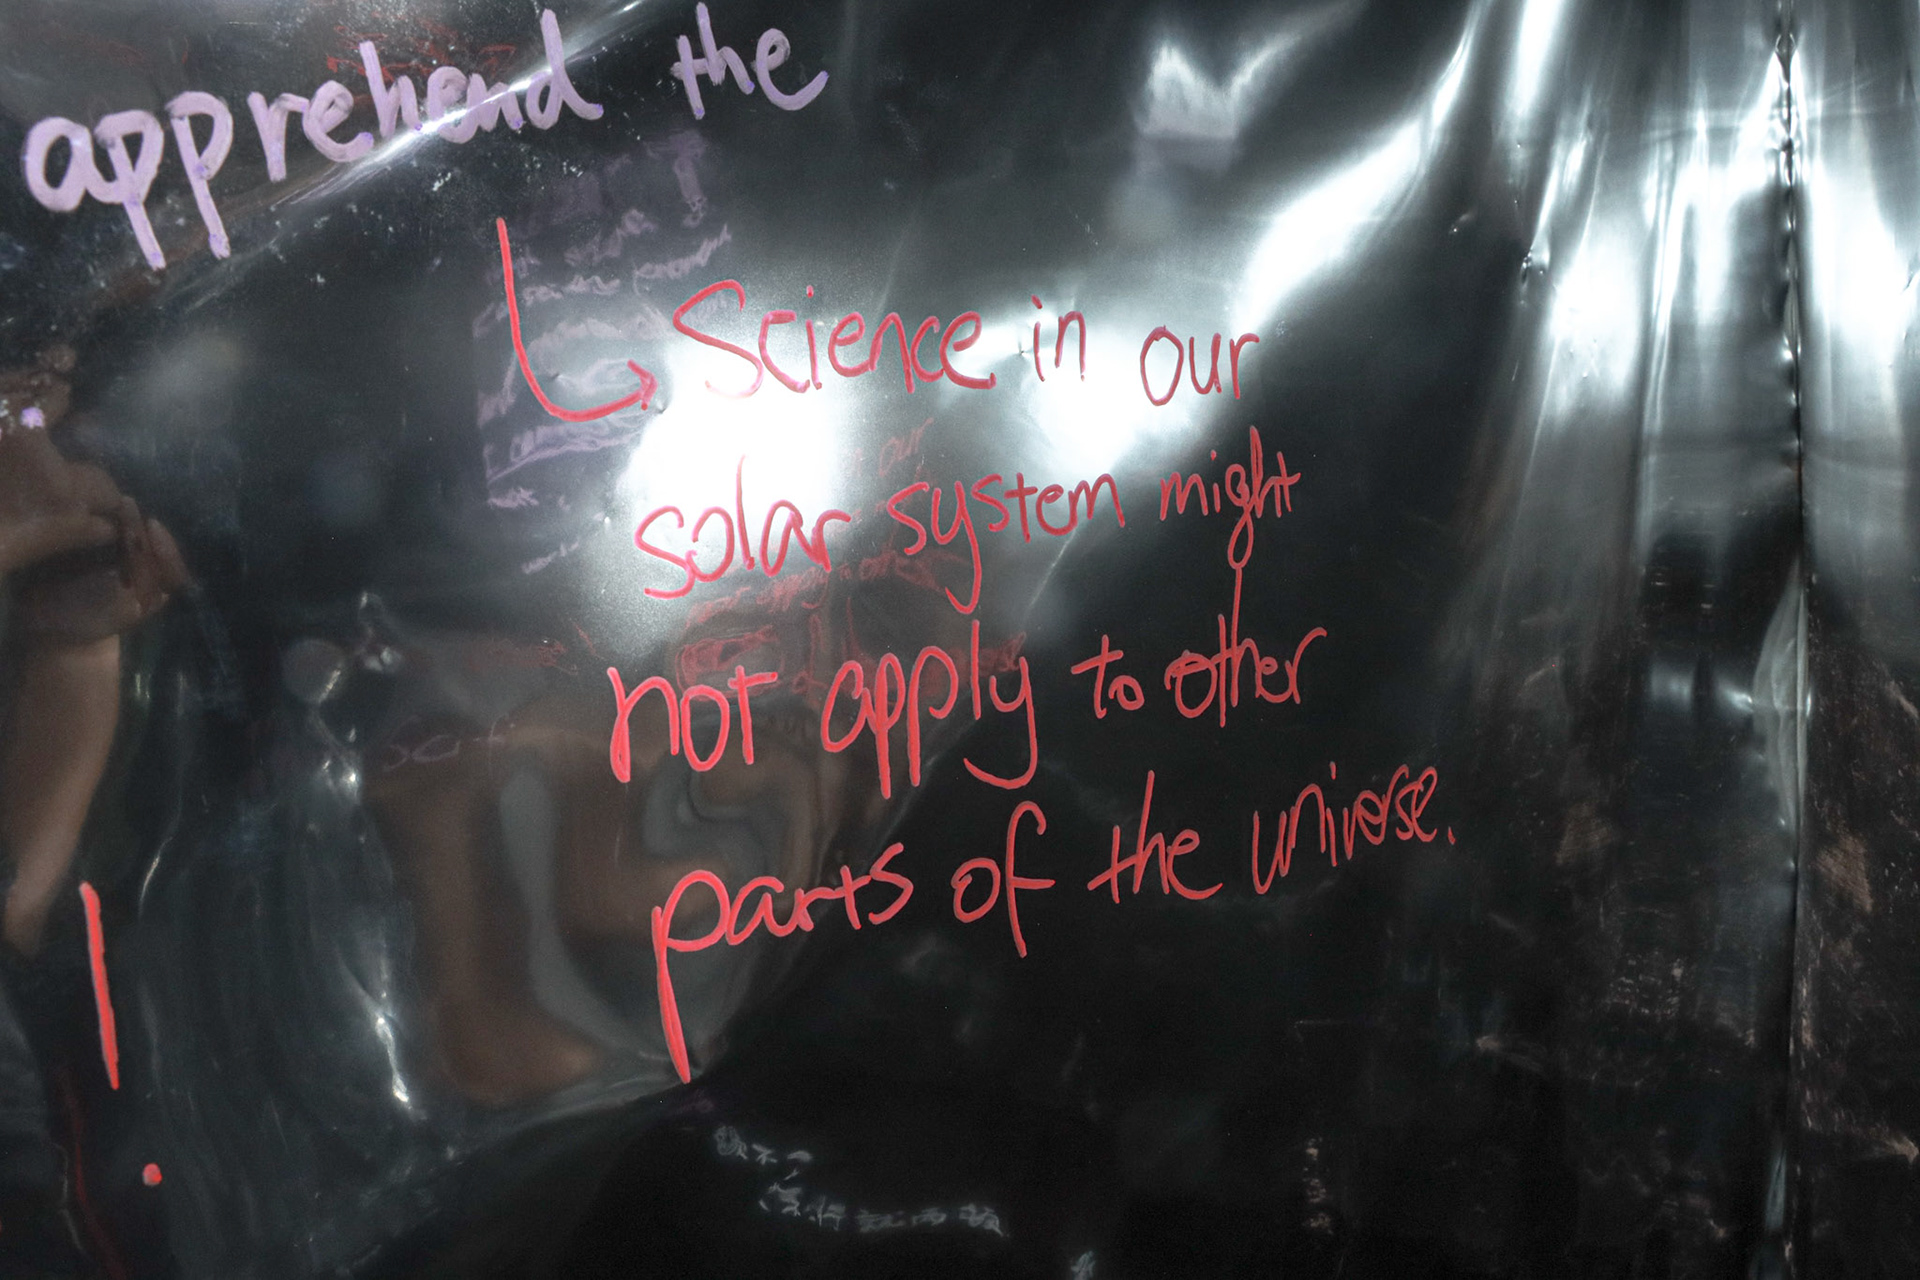 apprehend the
↳ Science in our
solar system might
not apply to other
parts of the universe.
!